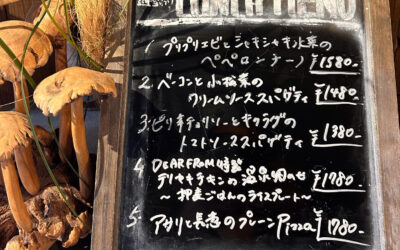 LUNCH MENU
1 プリプリエビとシャキシャキ水菜の
ペペロンチーノ ¥1580-
2. ベーコンと小松菜の
クリームソーススパゲティ ¥1480-
3. ピリ辛チョリソーとキャラグの
トマトソーススパゲティ ¥1380-
4 DEAR FROM特製
テリヤキチキンの温泉卵のせ
〜押麦ごはんのライスプレート〜 ¥1780-
5. アサリと長葱のプレーンPizza ¥1780-